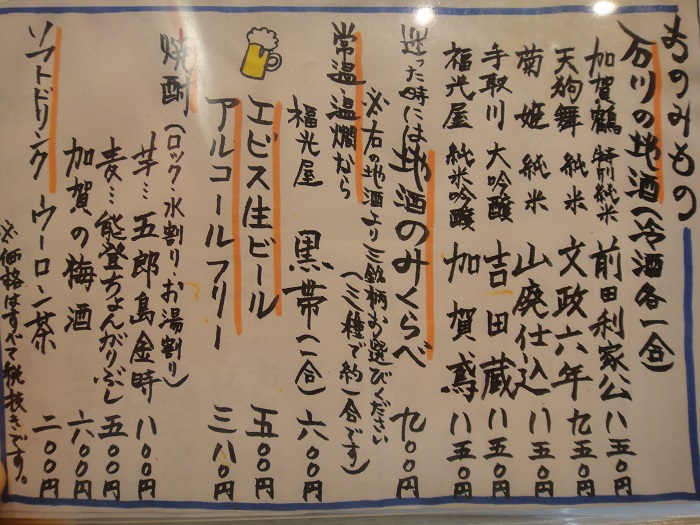 おのみもの
石川の地酒(冷酒各一合)
加賀鶴 特別純米 前田利家公 八五〇円
天狗舞 純米 文政六年 九五〇円
菊姫 純米 山廃仕込 八五〇円
手取川 大吟醸 吉田蔵 八五〇円
福光屋 純米吟醸 加賀鳶 八五〇円
迷った時には地酒のみくらべ 九〇〇円
※右の地酒より三銘柄お選びください
(三種で約一合です)
常温・温燗なら
福光屋 黒帯(一合) 六〇〇円
エビス生ビール 五〇〇円
アルコールフリー 三八〇円
焼酎(ロック・水割り・お湯割り)
芋…五郎島金時 八〇〇円
麦…能登ちょんがりぶし 五〇〇円
加賀の梅酒 六〇〇円
ソフトドリンク ウーロン茶 二〇〇円
※価格はすべて税抜きです。